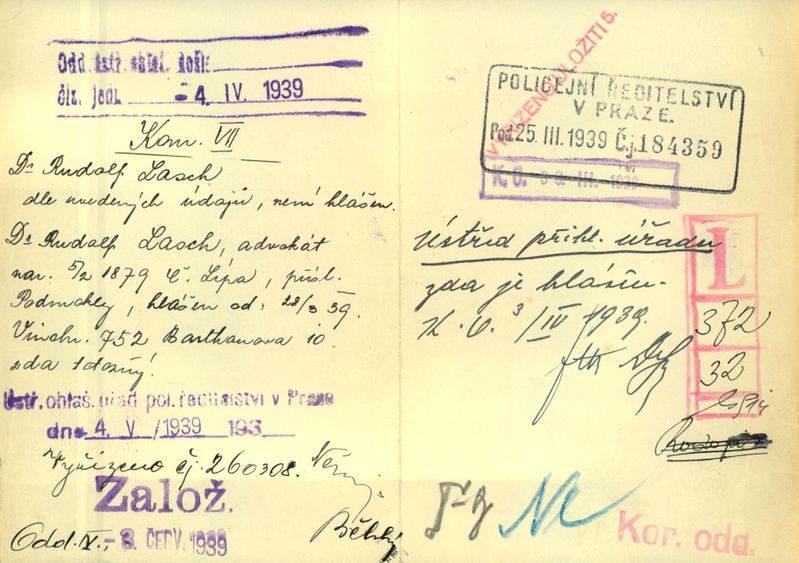 Odd. ústř. ohlaš. došlo
čís. jedn. - 4. IV. 1939
Kom. VII
Dr Rudolf Lasch
dle uvedených údajů, není hlášen.
Dr Rudolf Lasch, advokát
nar. 5/2 1879 Č. Lípa, přísl.
Podmokly, hlášen od: 28/3 39.
Vinohr. 752 Barthanova 10.
zda totožný.
Ústř. ohlaš. úřad pol. ředitelství v Praze
dne 4. V /1939 193
Vyřízeno čj. 260308.
Založ.
Odd. IV., - 3. ČERV. 1939
VYŘÍZENO ULOŽITI 5.
POLICEJNÍ ŘEDITELSTVÍ
V PRAZE.
Pod. 25. III. 1939 Čj. 184359
K. O. III. 1939
Ústřed přihl. úřadu
zda je hlášen.
K. O. 3/IV 1939.
L
372
32
Kor. odd.